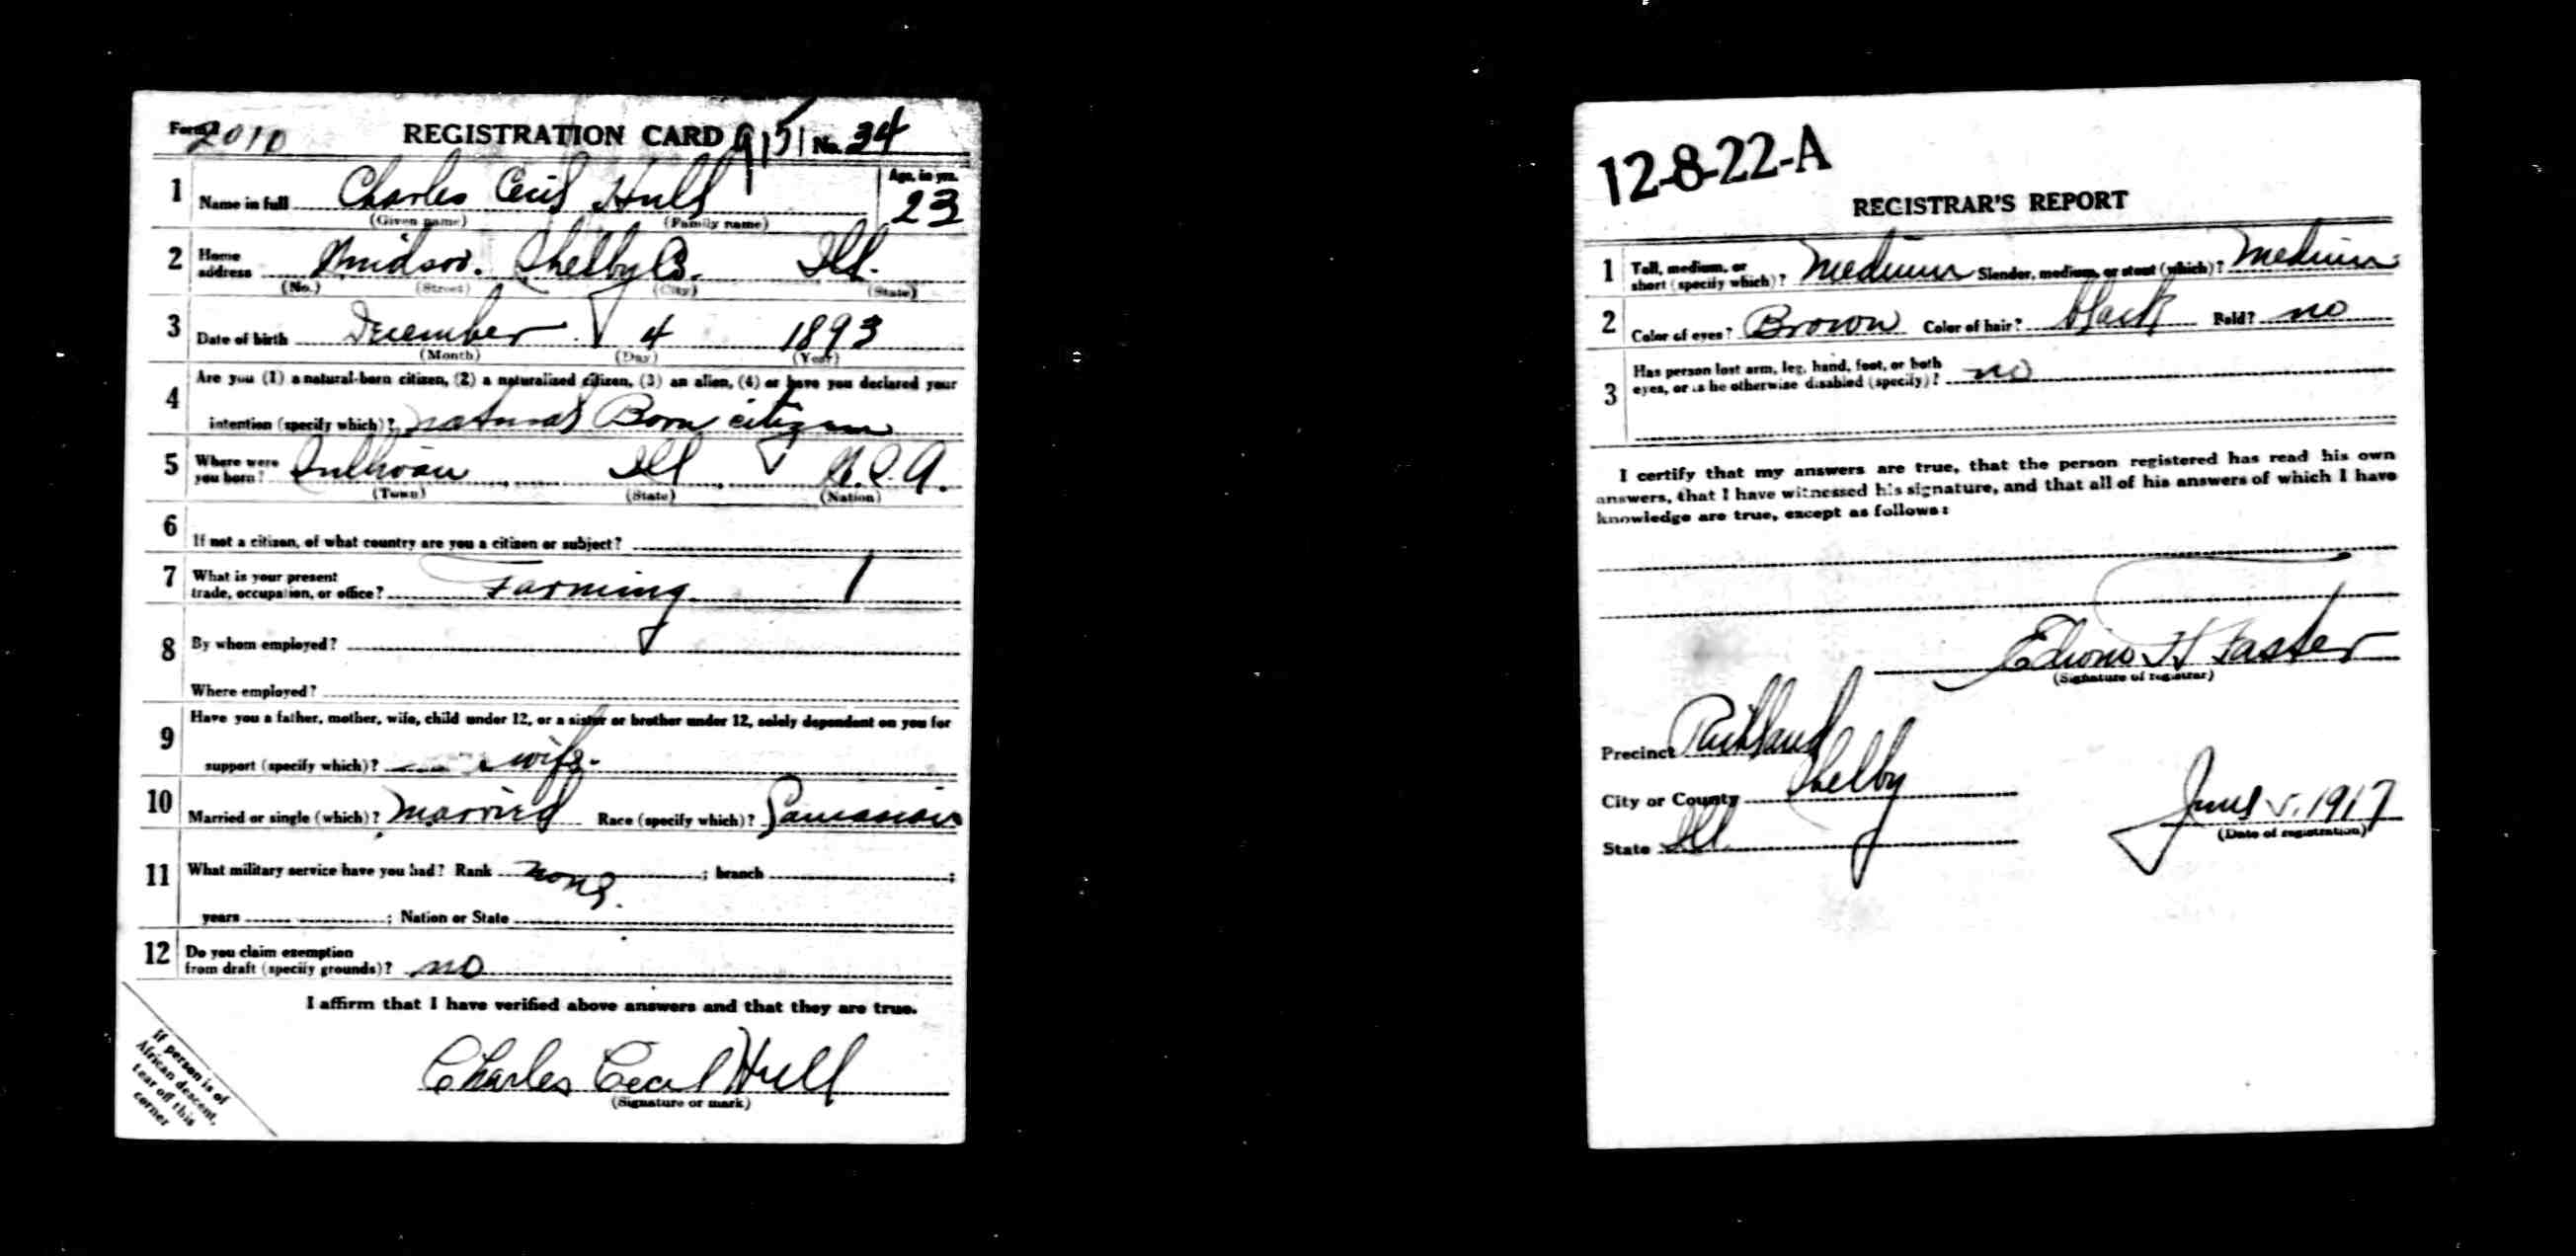 Form 1 2010 REGISTRATION CARD 9151 No. 34
1 Name in full Charles Cecil Hull Age, in yrs. 23
(Given name) (Family name)
2 Home address Windsor. Shelby Co. Ill.
(No.) (Street) (City) (State)
3 Date of birth December 4 1893
(Month) (Day) (Year)
4 Are you (1) a natural-born citizen, (2) a naturalized citizen, (3) an alien, (4) or have you declared your
intention (specify which)? natural Born citizen
5 Where were you born? Sullivan Ill U.S.A.
(Town) (State) (Nation)
6 If not a citizen, of what country are you a citizen or subject?
7 What is your present trade, occupation, or office? Farming 1
8 By whom employed?
Where employed?
9 Have you a father, mother, wife, child under 12, or a sister or brother under 12, solely dependent on you for
support (specify which)? wife.
10 Married or single (which)? Married Race (specify which)?
11 What military service have you had? Rank none. ; branch ;
years ; Nation or State
12 Do you claim exemption
from draft (specify grounds)? no
I affirm that I have verified above answers and that they are true.
Charles Cecil Hull
(Signature or mark)
If person is of
African descent,
tear off this
corner
12-8-22-A
REGISTRAR'S REPORT
1 Tall, medium, or short (specify which)? Medium Slender, medium, or stout (which)? Medium
2 Color of eyes? Brown Color of hair? black Bald? no
3 Has person lost arm, leg, hand, foot, or both
eyes, or is he otherwise disabled (specify)? no
I certify that my answers are true, that the person registered has read his own
answers, that I have witnessed his signature, and that all of his answers of which I have
knowledge are true, except as follows:
H
(Signature of registrar)
Precinct Richland
City or County Shelby
State Ill. June 5, 1917
(Date of registration)